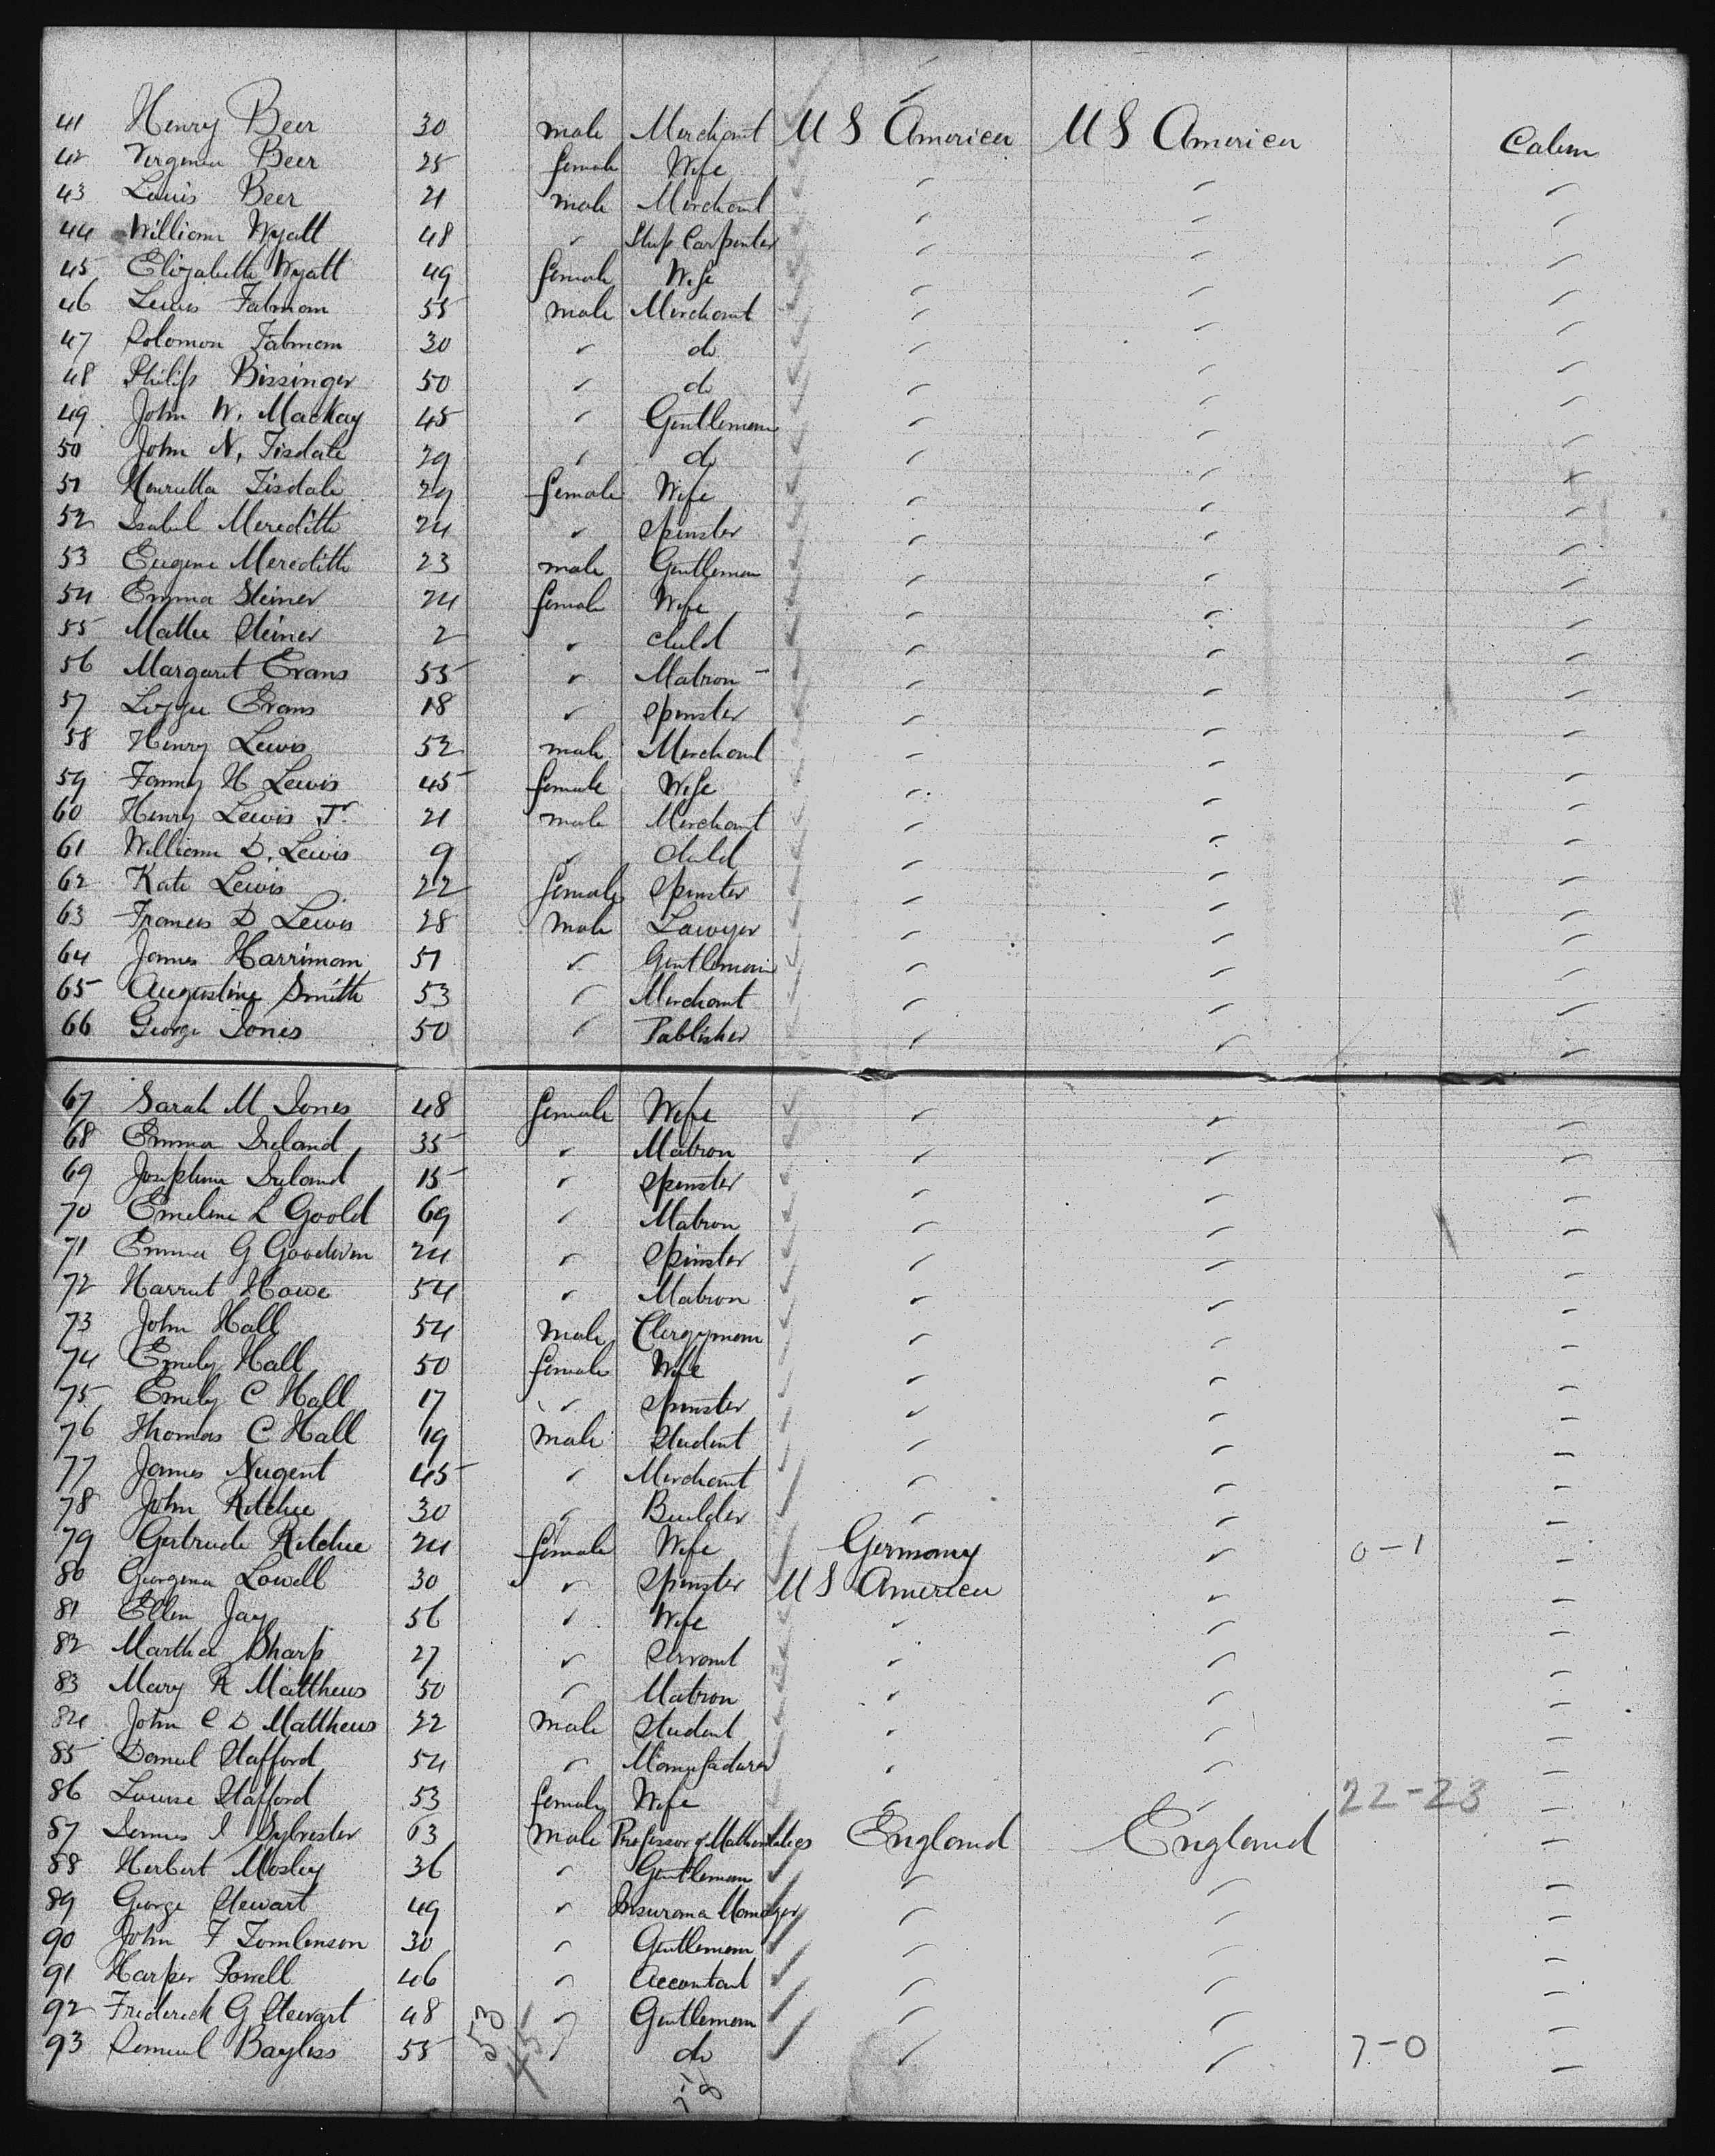 41 Henry Beer 30 male Merchant U S America U S America Cabin
42 Virginia Beer 25 female Wife
43 Louis Beer 21 male Merchant
44 William Wyatt 48 " Ship Carpenter
45 Elizabeth Wyatt 49 female Wife
46 Lewis Fatman 55 male Merchant
47 Solomon Fatman 30 " do
48 Philip Bissinger 50 " do
49 John W. Mackay 45 " Gentleman
50 John N. Tisdale 29 " do
51 Henrietta Tisdale 29 female Wife
52 Isabel Meredith 24 " Spinster
53 Eugene Meredith 23 male Gentleman
54 Emma Steiner 24 female Wife
55 Mattie Steiner 2 " child
56 Margaret Evans 55 " Matron
57 Lizzie Evans 18 " Spinster
58 Henry Lewis 52 male Merchant
59 Fanny H Lewis 45 female Wife
60 Henry Lewis Jr 21 male Merchant
61 William D. Lewis 9 " child
62 Kate Lewis 22 female Spinster
63 Francis D Lewis 28 male Lawyer
64 James Harriman 51 " Gentleman
65 Augustine Smith 53 " Merchant
66 George Jones 50 " Publisher
67 Sarah M Jones 48 female Wife " "
68 Emma Ireland 35 " Matron
69 Josephine Ireland 15 " Spinster
70 Emeline L Goold 69 " Matron
71 Emma G Goodwin 24 " Spinster
72 Harriet Howe 54 " Matron
73 John Hall 54 male Clergyman
74 Emily Hall 50 female Wife
75 Emily C Hall 17 " Spinster
76 Thomas C Hall 19 male Student
77 James Nugent 45 " Merchant
78 John Ritchie 30 " Builder
79 Gertrude Ritchie 24 female Wife Germany " 0-1
80 Georgina Lowell 30 " Spinster U S America
81 Ellen Jay 56 " Wife
82 Martha Sharp 27 " Servant
83 Mary R Matthews 50 " Matron
84 John C D Matthews 22 male Student
85 Daniel Stafford 54 " Manufacturer
86 Louise Stafford 53 female Wife 22-23
87 James J Sylvester 63 male Professor of Mathematics England England
88 Herbert Mosley 36 " Gentleman
89 George Stewart 49 " Insurance Manager
90 John F Tomlinson 30 " Gentleman
91 Harper Powell 46 " Accontant
92 Frederick G Stewart 48 " Gentleman
93 Samuel Bayliss 55 " do 7-0
53
45